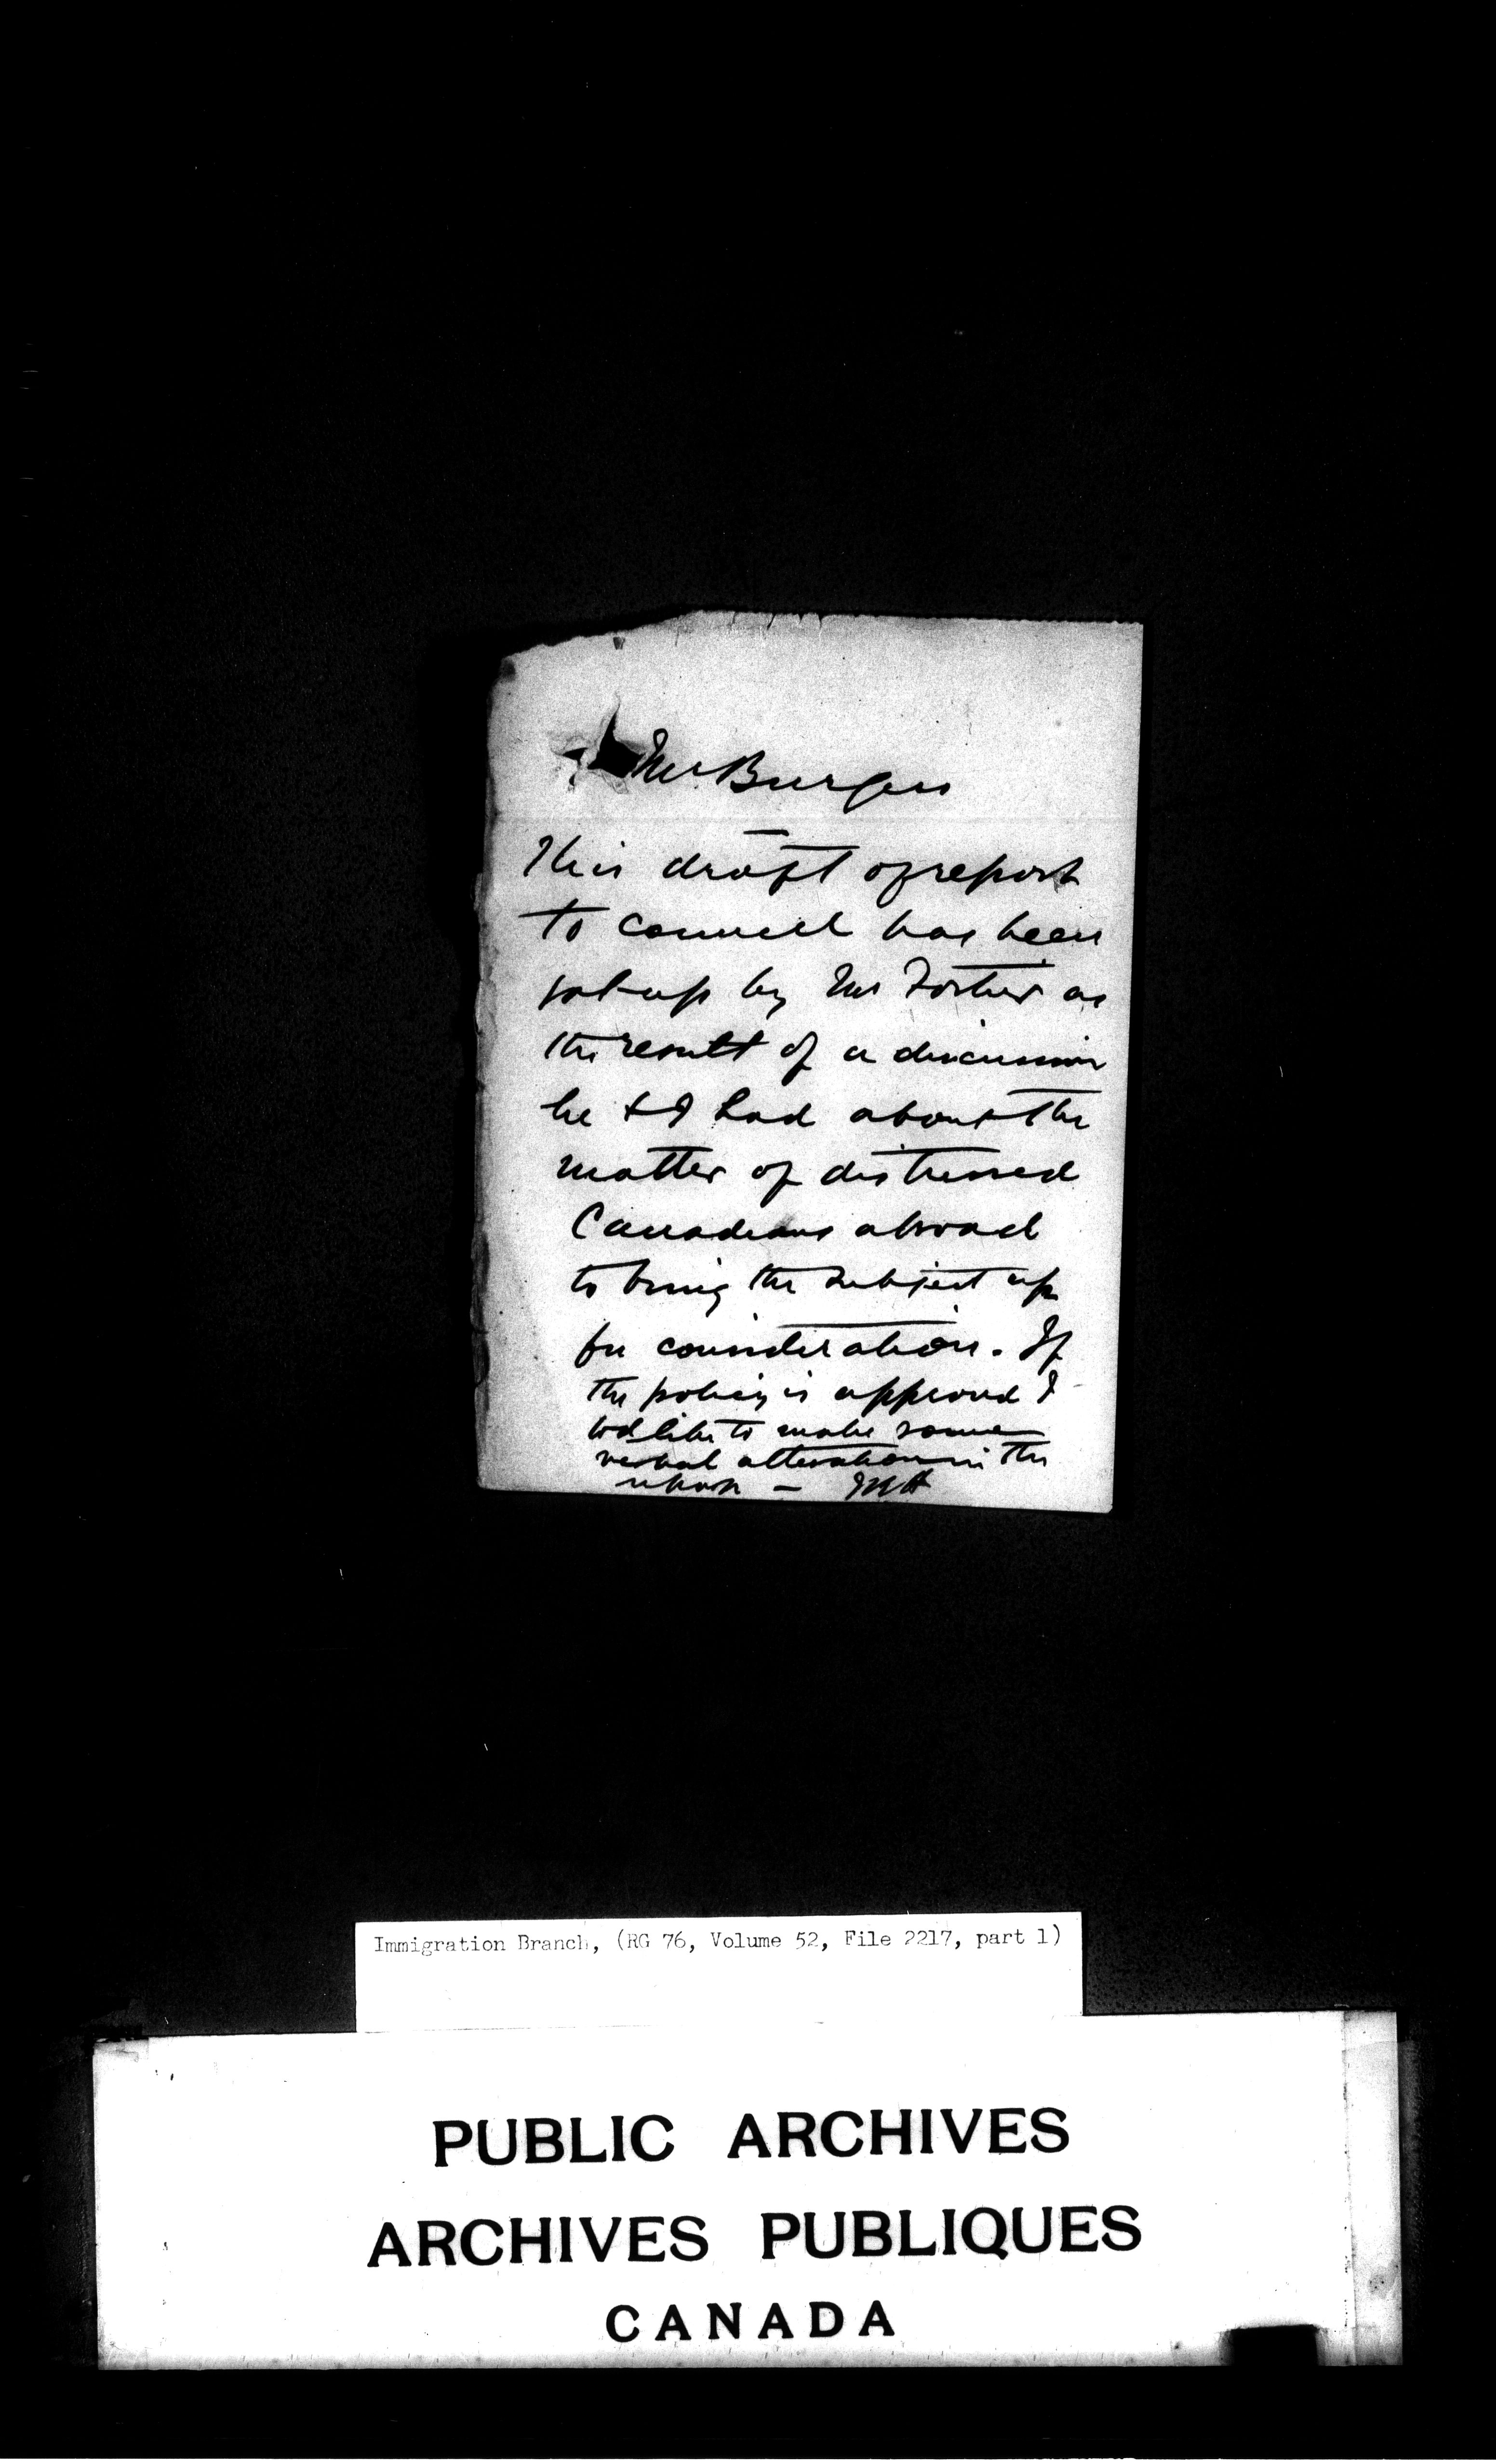 Mr Burgess
This draft of report
to council has been
got up by Mr Fortier as
the result of a discussion
he & I had about the
matter of distressed
Canadians abroad
to bring the subject up
for consideration. If
the policy is approved I
wd like to make some
verbal alterations in the
report —
Immigration Branch, (RG 76, Volume 52, File 2217, part 1)
PUBLIC ARCHIVES
ARCHIVES PUBLIQUES
CANADA